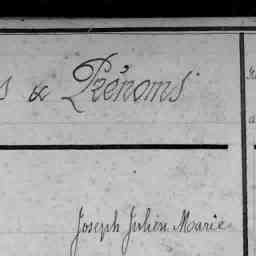 & Prénoms
Joseph Julien Marie